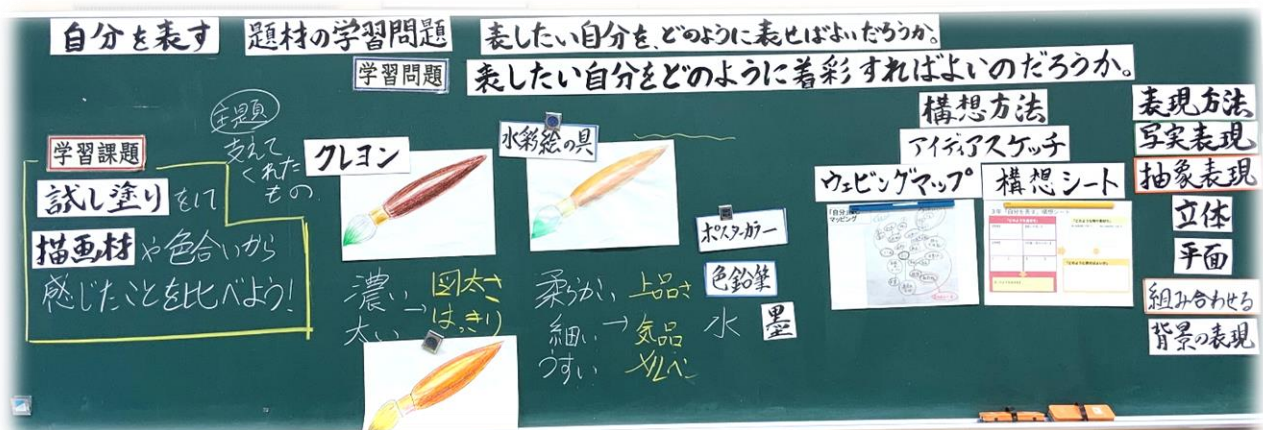 自分を表す 題材の学習問題 表したい自分を、どのように表せばよいだろうか。
学習問題 表したい自分をどのように着彩すればよいのだろうか。
主題
支えて
くれた
もの
学習課題
試し塗りをして
描画材や色合いから
感じたことを比べよう!
クレヨン
濃い → 図太さ
太い はっきり
水彩絵の具
柔らかい 上品さ
細い → 気品
うすい
ポスターカラー
色鉛筆
水 墨
構想方法
アイディアスケッチ
ウェビングマップ 構想シート
マッピング
表現方法
写実表現
抽象表現
立体
平面
組み合わせる
背景の表現